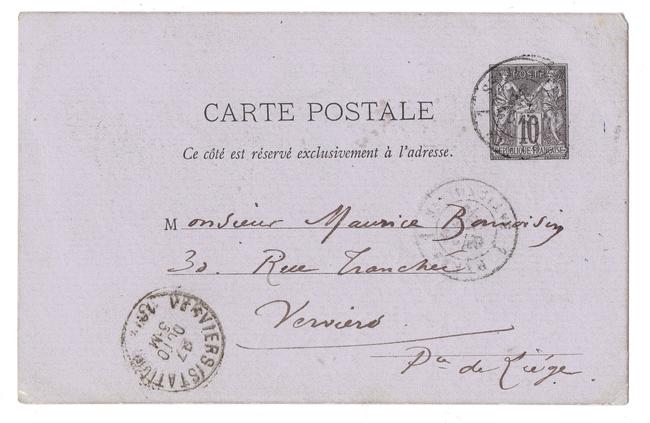 POSTES
10
RÉPUBLIQUE FRANÇAISE
CARTE POSTALE
Ce côté est réservé exclusivement à l'adresse.
Monsieur Maurice
30. Rue Tranchée
Verviers
Pce de Liége.
VERVIERS (STATION)
27
3-M